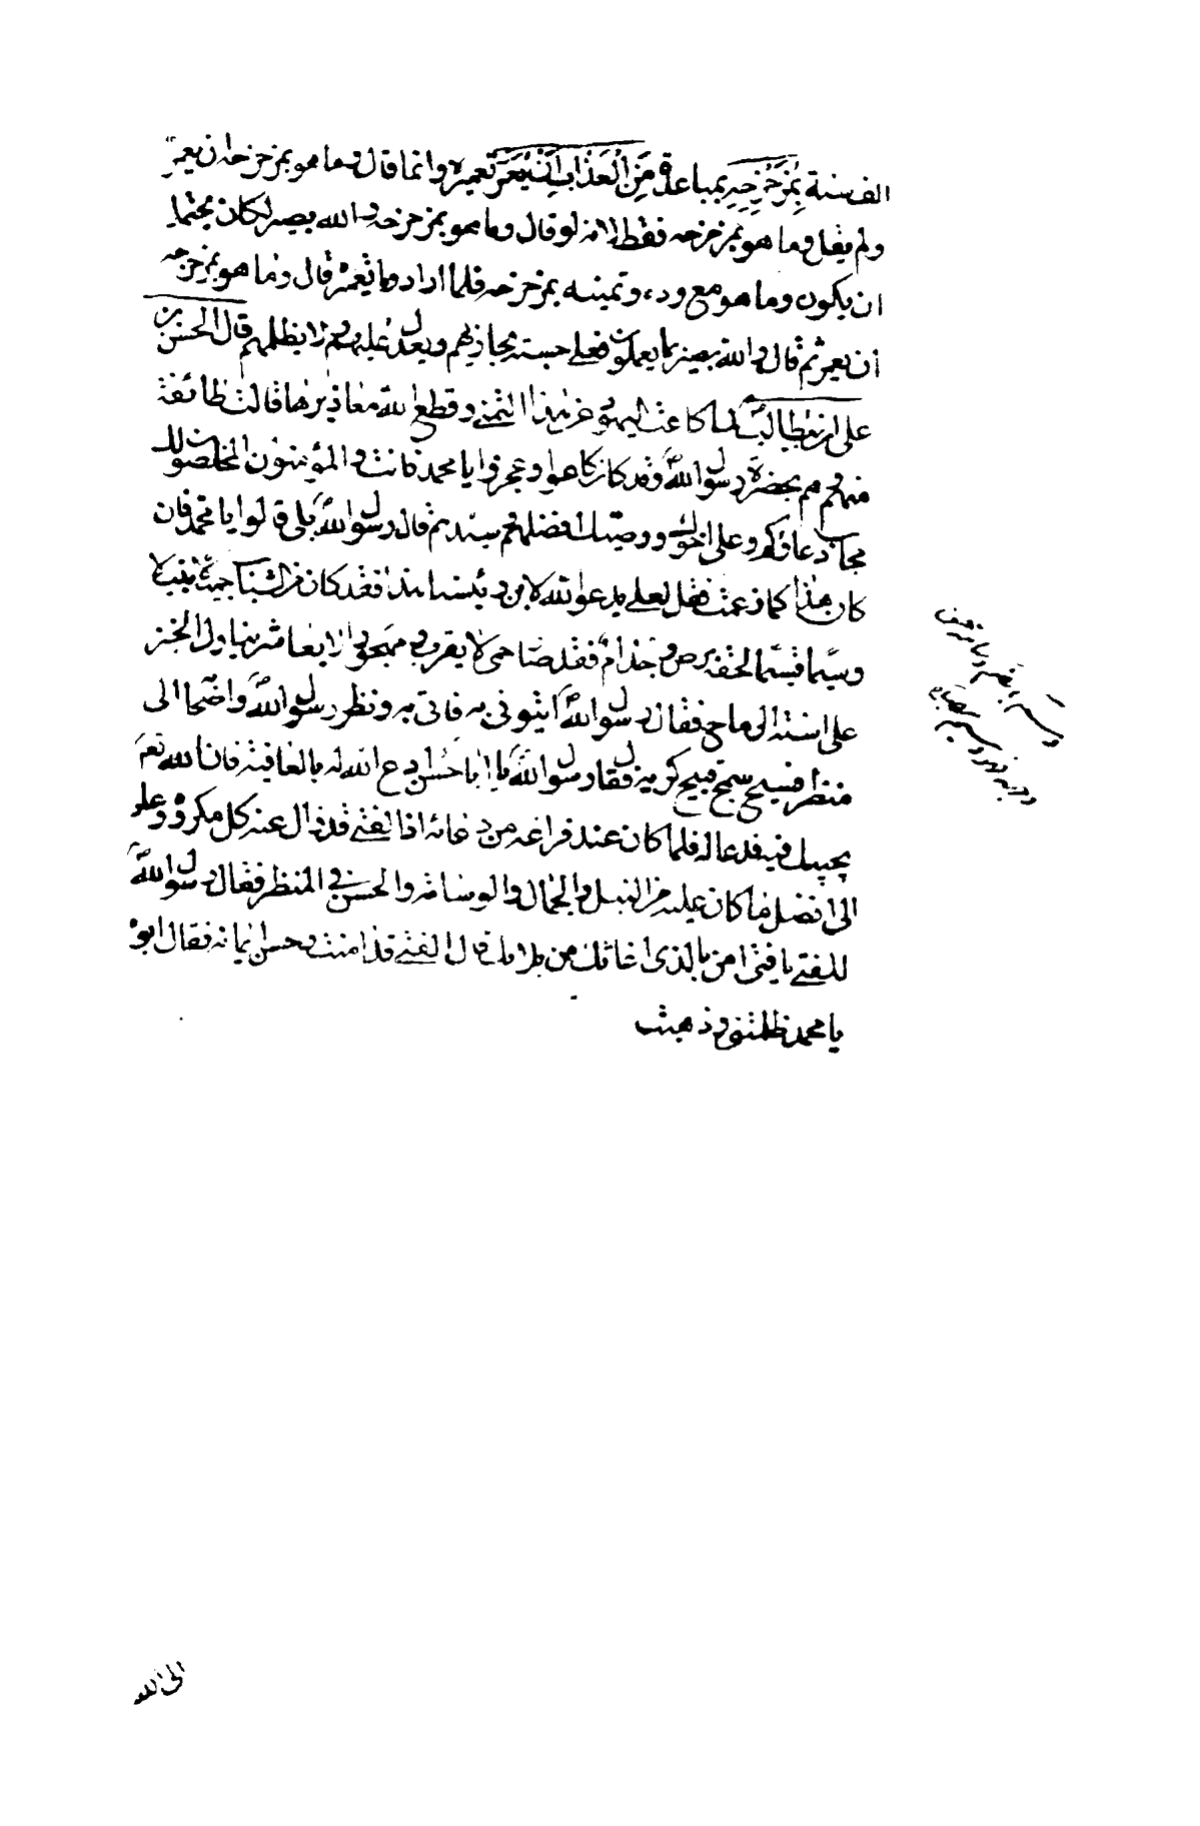 الف سنة بِمُزَحْزِحِهِ بمباعده مِنَ الْعَذَابِ اَنْ يُعَمَّرَ تعميره وانما قال وما هو بمزحزحه ان يعمر
ولم يقل وما هو بمزحزحه فقط لانه لو قال وما هو بمزحزحه والله بصير لكان يحتمل
ان يكون وما هو مع وده وتمنيه بمزحزحه فلما اراد وما تعميره قال وما هو بمزحزحه
ان يعمر ثم قال والله بصير بما يعملون فعلى حسبه يجازيهم ويعدل عليهم ولا يظلمهم قال الحسن بن
على بن ابيطالب لما كاعت اليهود عن هذا التمنى وقطع الله معاذيرها قالت طائفة
منهم وهم بحضرة رسول الله وقد كاعوا وعجزوا يا محمد فانت والمؤمنون المخلصون لك
مجاب دعاؤكم وعلى اخوك ووصيك افضلهم وسيدهم قال رسول الله بلى قالوا يا محمد فان
كان هذا كما زعمت فقل لعلى يدعو الله لابن رئيسنا هذا فقد كان من الشباب جميلا نبيلا
وسيما قسيما لحقه برص وجذام فقد صار حمى لا يقرب ومهجورا لا يعاشر يتناول الخبز
على اسنة الرماح فقال رسول الله ايتونى به فاتى به ونظر رسول الله واصحابه الى
منظر فظيع سمج قبيح كريه فقال رسول الله يا ابا حسن ادع الله له بالعافية فان الله تعالى
يجيبك فيه فدعا له فلما كان عند فراغه من دعائه اذا الفتى قد زال عنه كل مكروه وعاد
الى افضل ما كان عليه من النبل والجمال والوسامة والحسن فى المنظر فقال رسول الله
للفتى يا فتى امن بالذى اغاثك من بلائك قال الفتى قد امنت وحسن ايمانه فقال ابوه
يا محمد ظلمتنى وذهبت